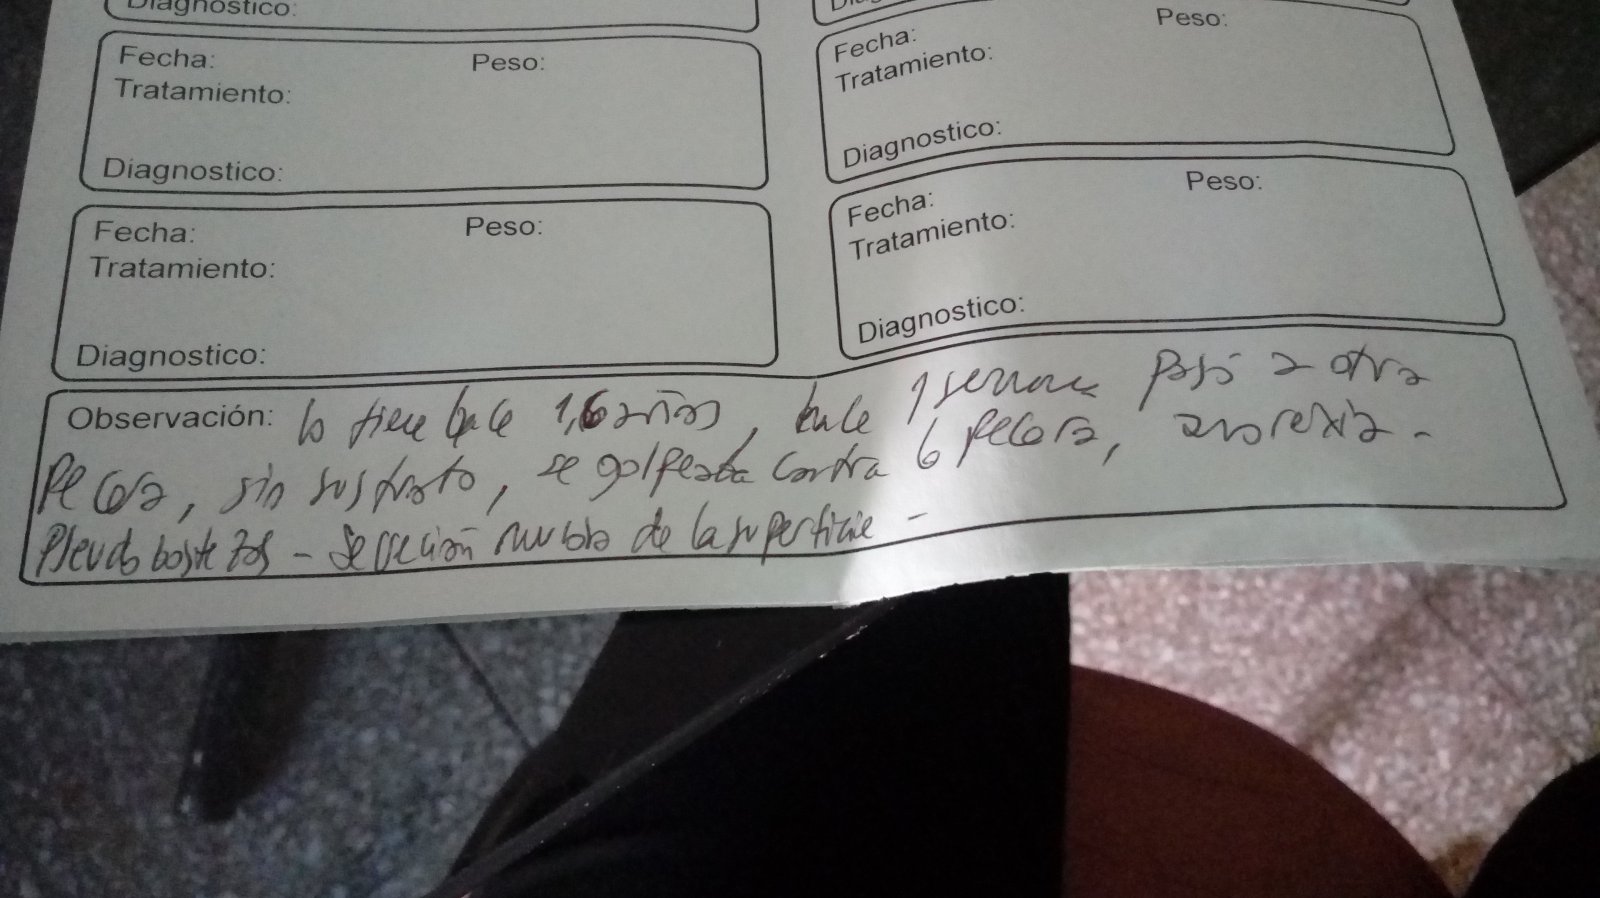 Diagnostico:
Fecha: Peso:
Tratamiento:
Diagnostico:
Fecha: Peso:
Tratamiento:
Diagnostico:
Peso:
Fecha:
Tratamiento:
Diagnostico:
Fecha: Peso:
Tratamiento:
Diagnostico:
Observación: lo tiene hace 1,6 años, hace 1 semana pasó a otra
pecera, sin sustrato, se golpeaba contra la pecera, anorexia -
Pseudo bostezos - Secreción nubla de la superficie -